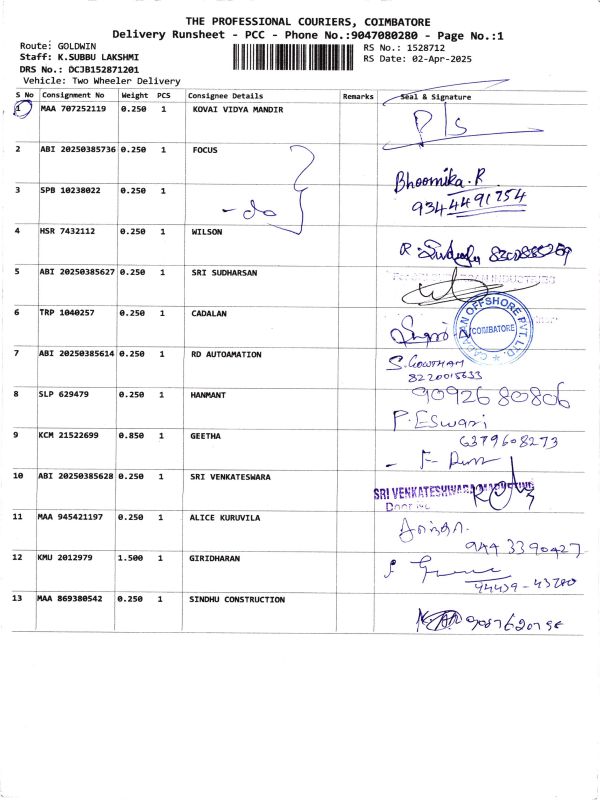 THE PROFESSIONAL COURIERS, COIMBATORE
Delivery Runsheet - PCC - Phone No.:9047080280 - Page No.:1
Route: GOLDWIN
RS No.: 1528712
Staff: K.SUBBU LAKSHMI
RS Date: 02-Apr-2025
DRS No.: DCJB152871201
Vehicle: Two Wheeler Delivery
S No Consignment No Weight PCS Consignee Details Remarks Seal & Signature
1 MAA 707252119 0.250 1 KOVAI VIDYA MANDIR
2 ABI 20250385736 0.250 1 FOCUS
Bhoomika.R
3 SPB 10238022 0.250 1 - do
9344491754
4 HSR 7432112 0.250 1 WILSON
5 ABI 20250385627 0.250 1 SRI SUDHARSAN
6 TRP 1040257 0.250 1 CADALAN
OFFSHORE PVT. LTD.
COIMBATORE
7 ABI 20250385614 0.250 1 RD AUTOMATION
S. GOWTHAM
8220015633
8 SLP 629479 0.250 1 HANMANT
9092680806
P. Eswari
9 KCM 21522699 0.850 1 GEETHA
6379608273
10 ABI 20250385628 0.250 1 SRI VENKATESWARA
SRI VENKATESHWARA
11 MAA 945421197 0.250 1 ALICE KURUVILA
944 3390427
12 KMU 2012979 1.500 1 GIRIDHARAN
13 MAA 869380542 0.250 1 SINDHU CONSTRUCTION